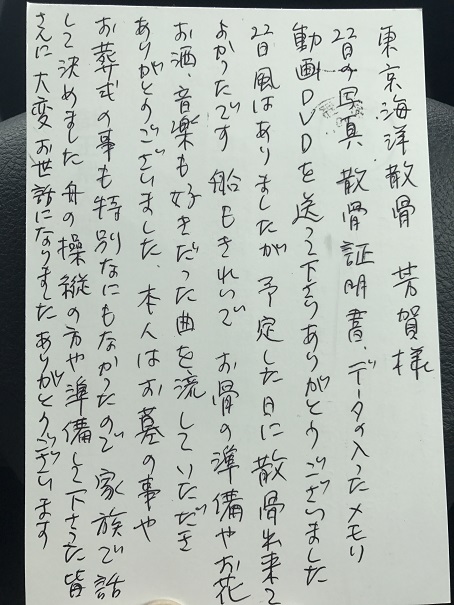 東京海洋散骨　芳賀様
22日の写真　散骨証明書、データの入ったメモリ
動画DVDを送って下さりありがとうございました
22日風はありましたが　予定した日に散骨出来て
よかったです　船もきれいで　お骨の準備やお花
お酒　音楽も好きだった曲を流していただき
ありがとうございました、本人はお墓の事や
お葬式の事も特別なにもなかったので　家族で話
して決めました　舟の操縦の方や準備して下さった皆
さんに大変お世話になりました　ありがとうございます